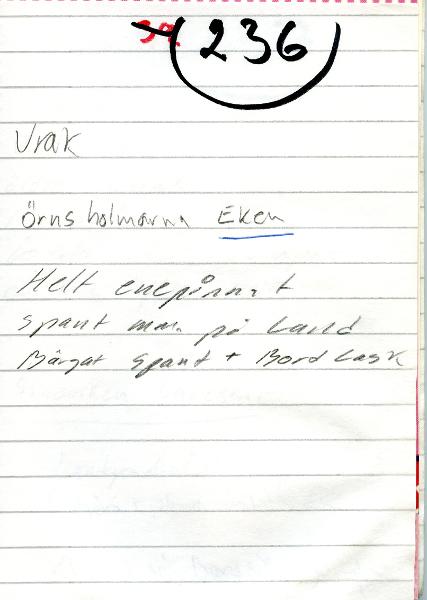 236
Vrak
Örnsholmarna Eken
Helt enepinnat
Spant mm. på Land
Bärgat spant + Bord Lask